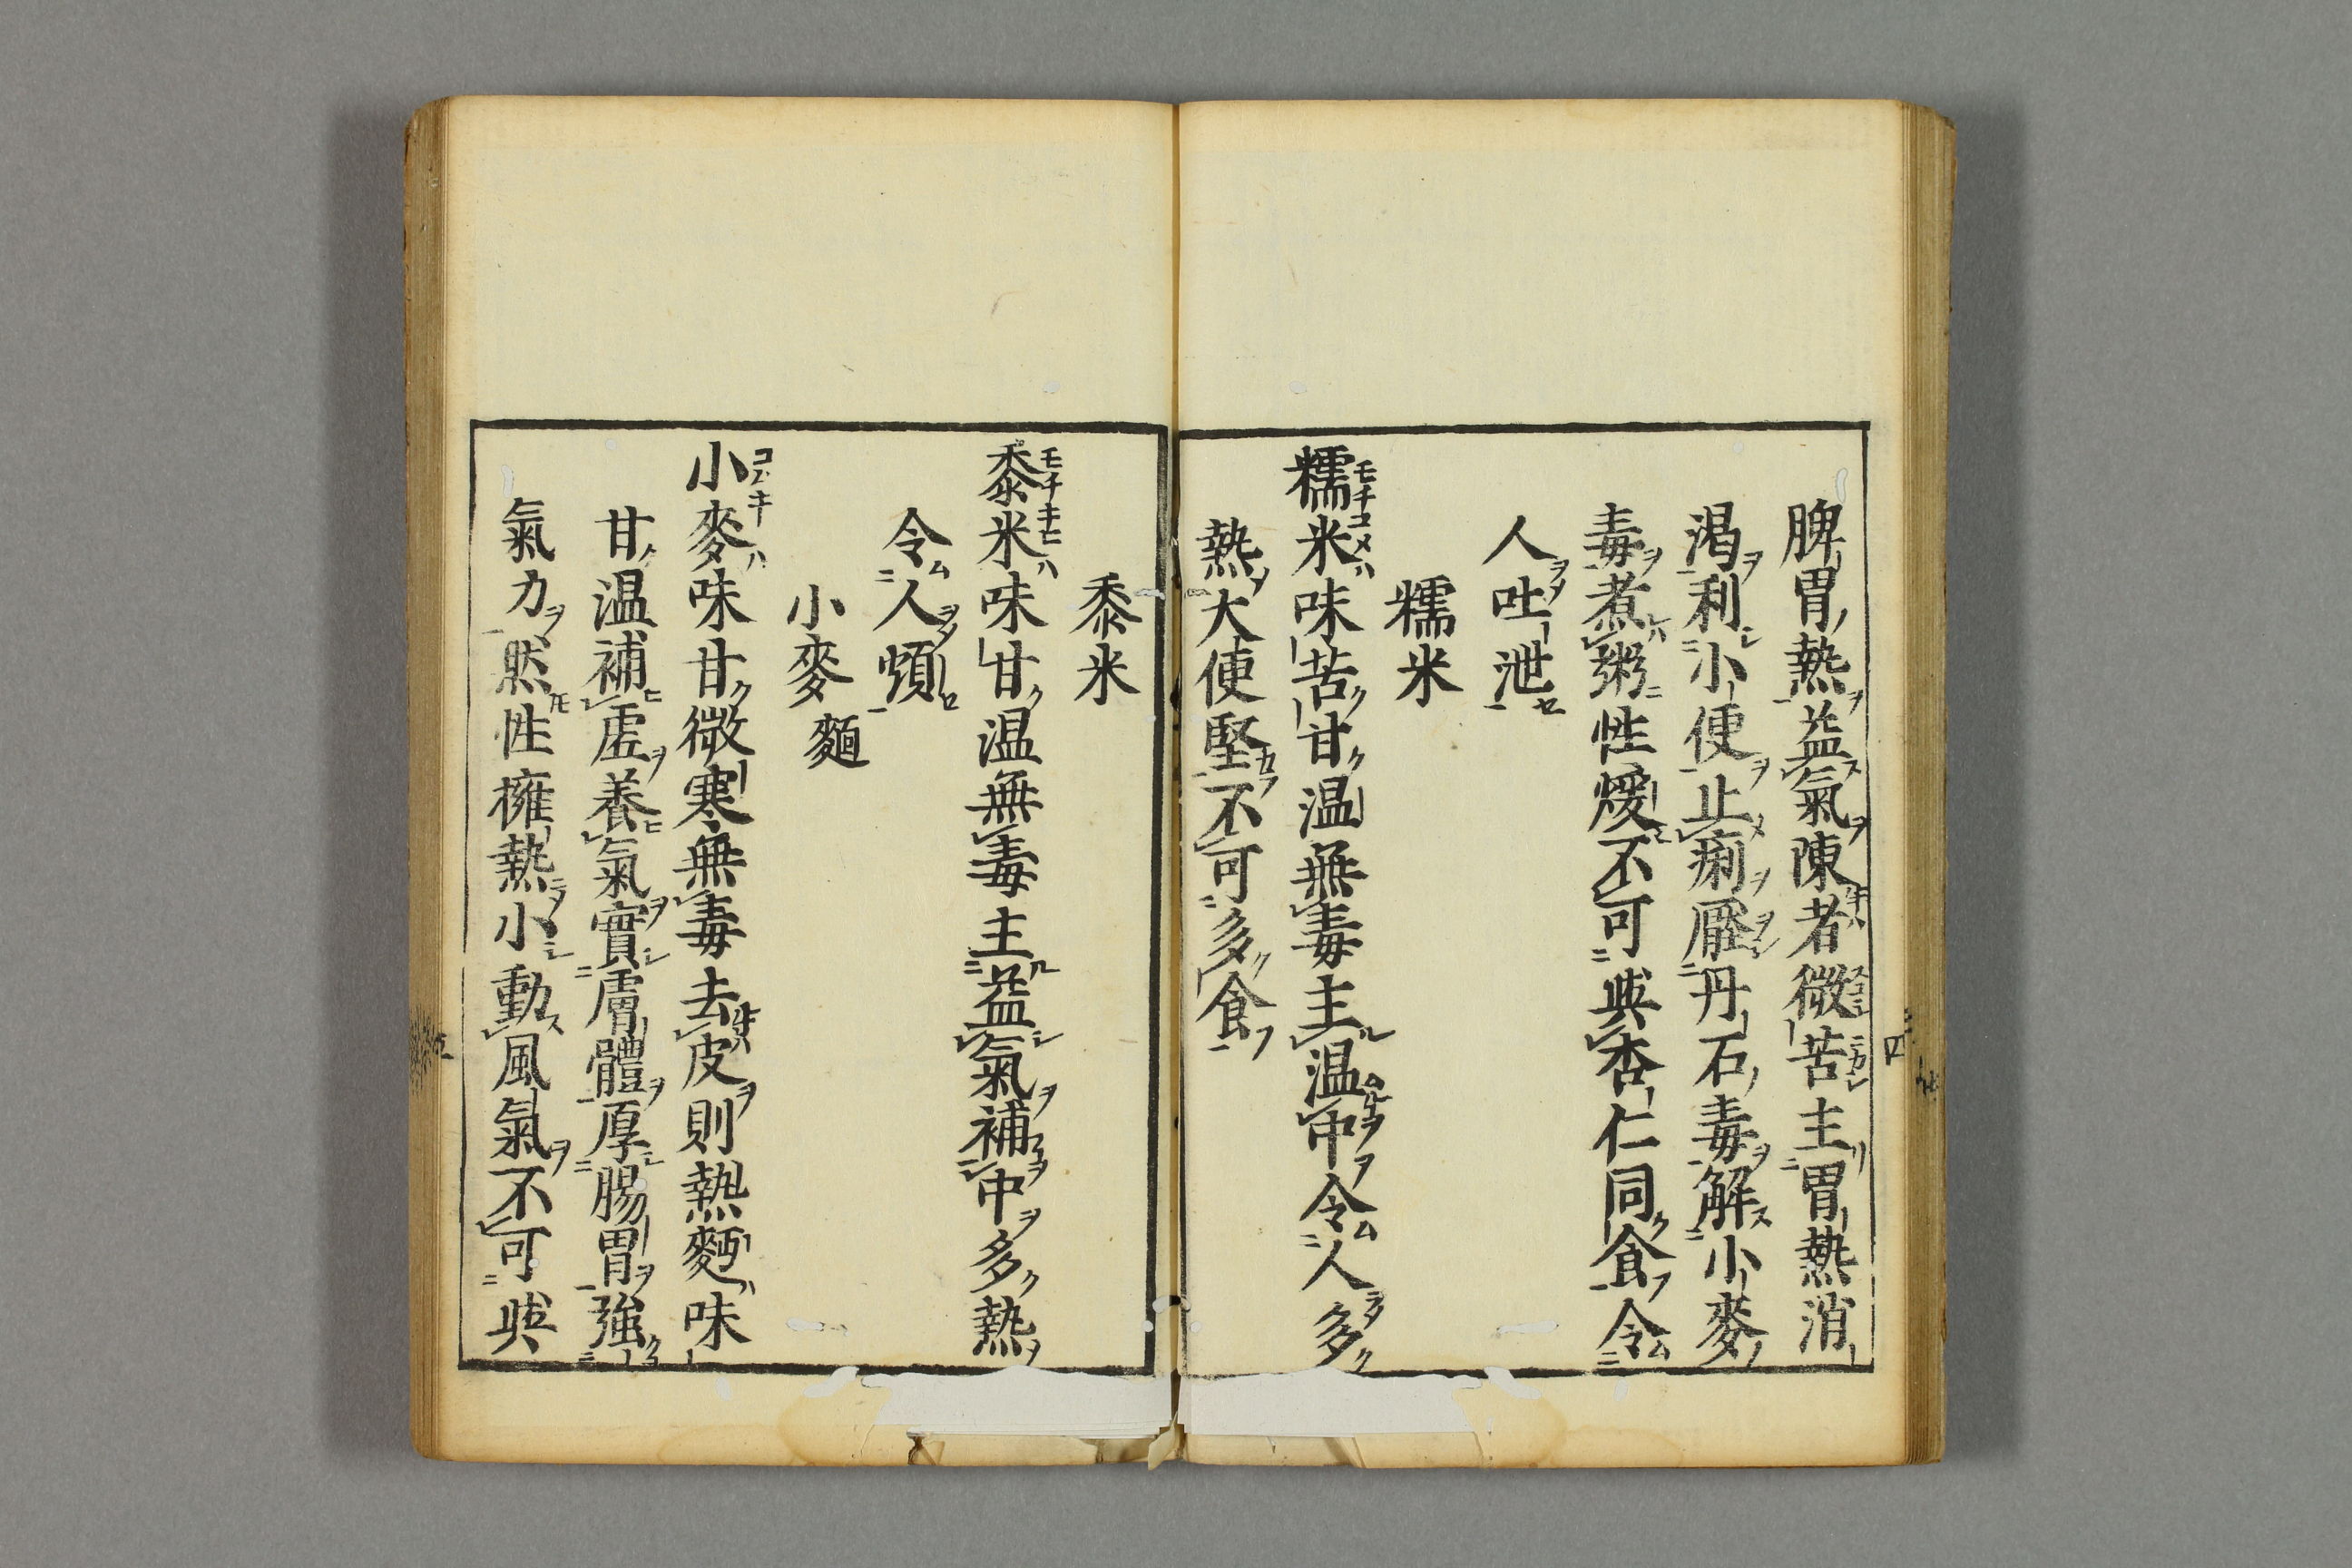 脾胃熱益氣陳者微苦主胃熱消
渇利小便止痢壓丹石毒解小麥
毒煮粥性煖不可與杏仁同食令
人吐泄
糯米
糯米味苦甘温無毒主温中令人多
熱大便堅不可多食
黍米
黍米味甘温無毒主益氣補中多熱
令人煩
小麥麵
小麥味甘微寒無毒去皮則熱麪味
甘温補虛養氣實膚體厚腸胃強
氣力然性擁熱小動風氣不可與